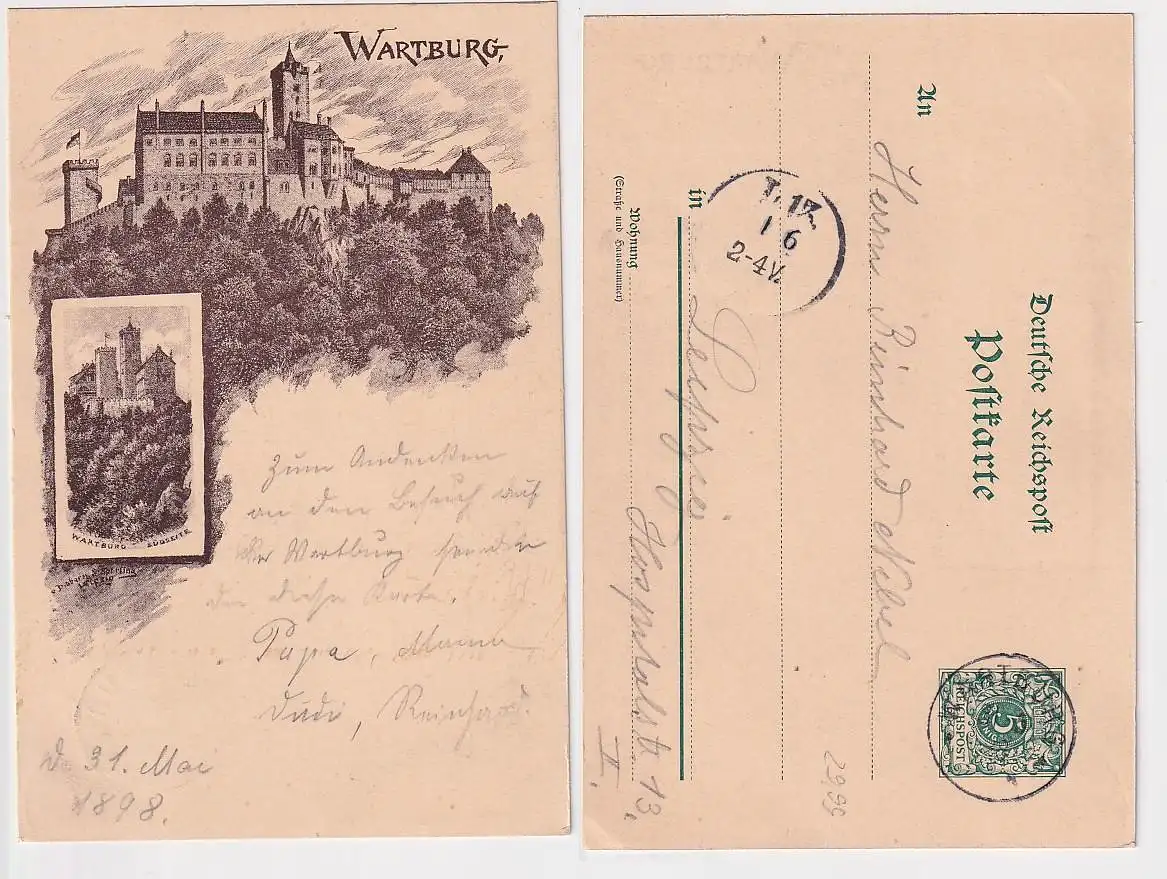 WARTBURG,
WARTBURG SÜDSEITE
Zum Andenken
an den Besuch auf
der Wartburg senden
dir diese Karte,
Papa, Mama
Dudi, Reinhard.
d. 31. Mai
1898.
Deutsche Reichspost
Postkarte
An
Herrn Reinhard Nebel
in
Leipzig
Wohnung
(Straße und Hausnummer)
Hospitalstr. 13,
II.
1/6
2-4 V.
WARTBURG
REICHSPOST
5
2999